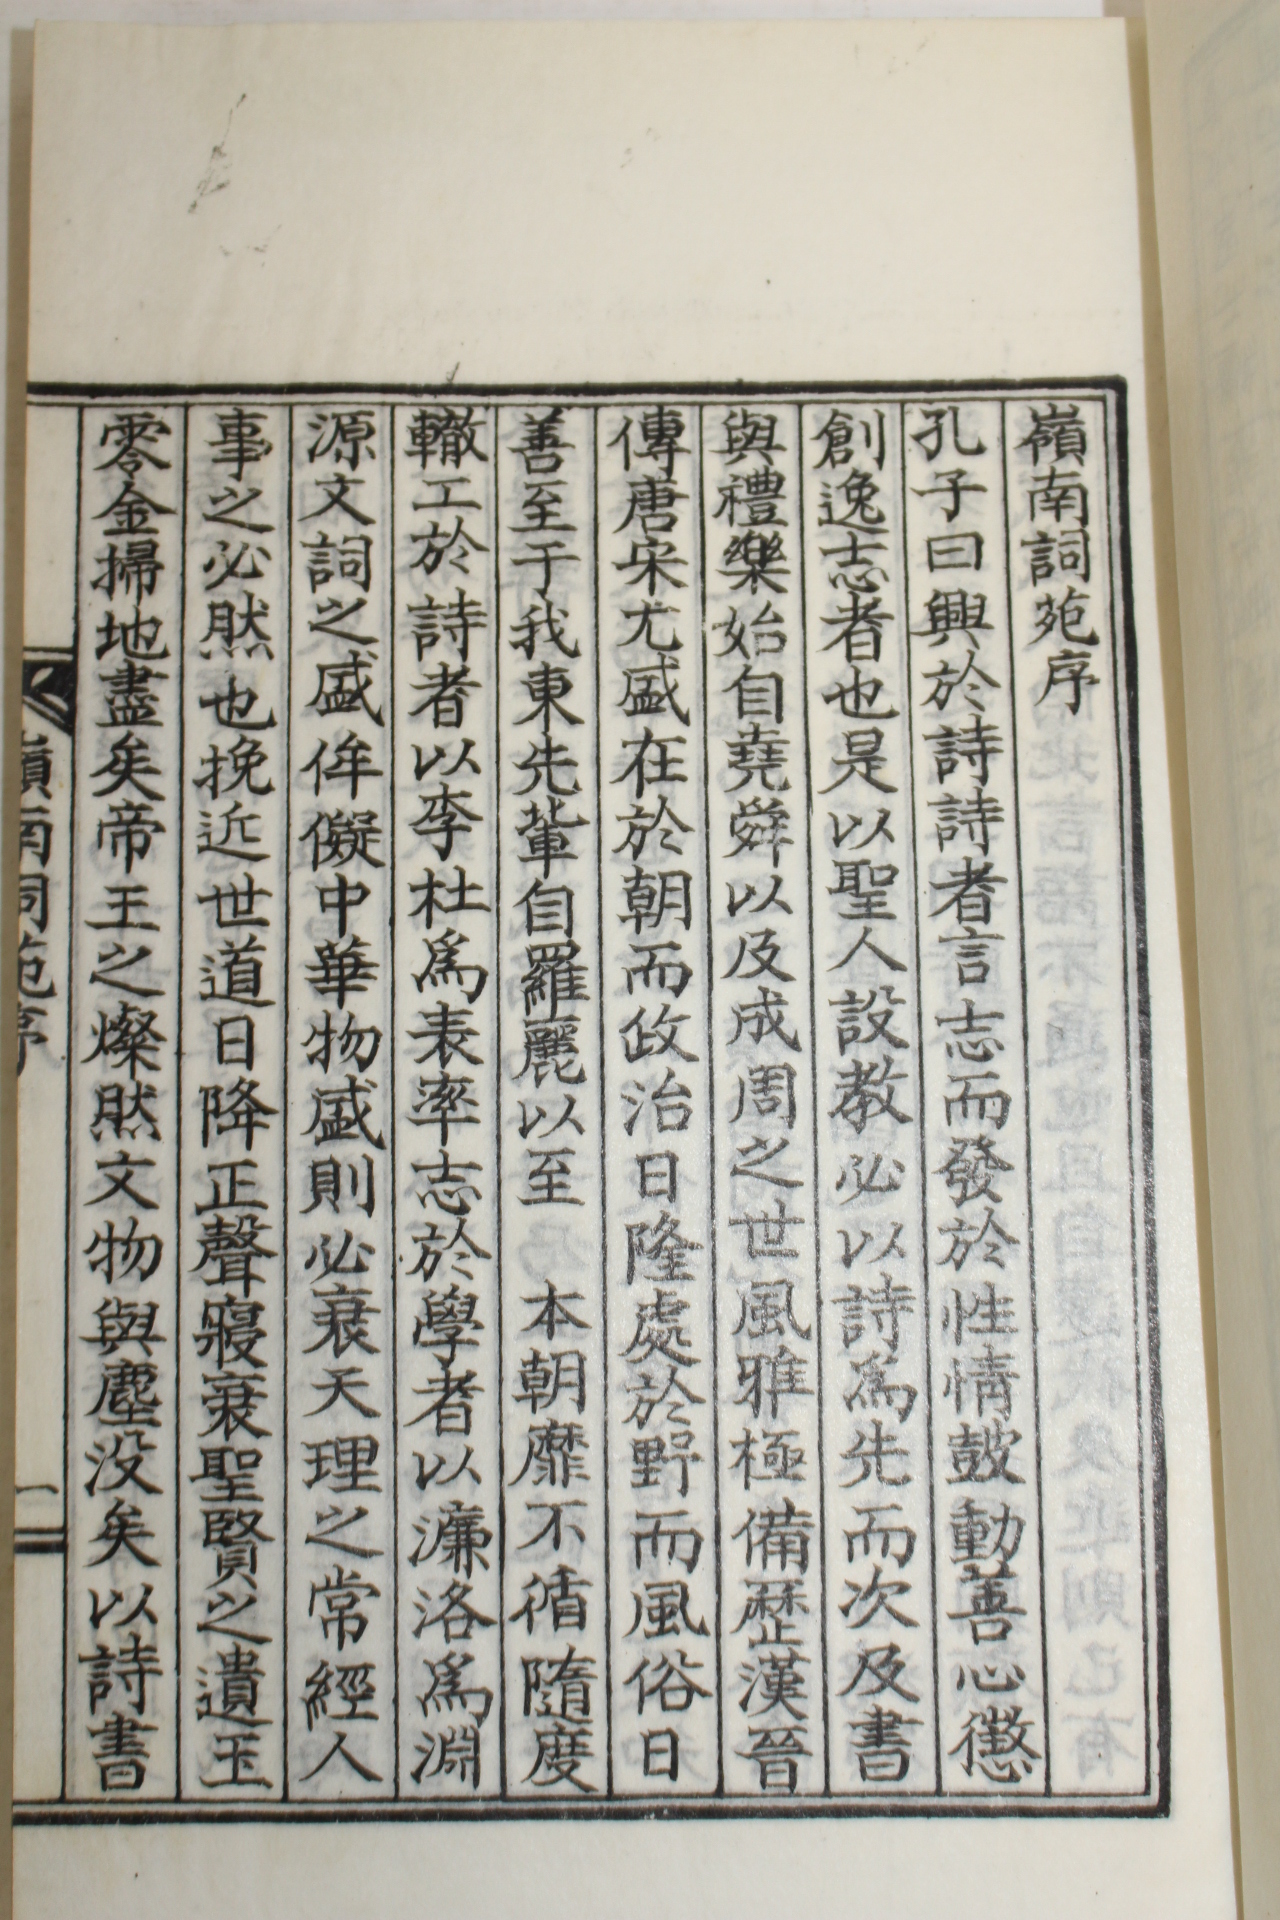 嶺南詞苑序
孔子曰興於詩詩者言志而發於性情鼓動善心懲
創逸志者也是以聖人設教必以詩爲先而次及書
與禮樂始自堯舜以及成周之世風雅極備歷漢晉
傳唐宋尤盛在於朝而政治日隆處於野而風俗日
善至于我東先輩自羅麗以至 本朝靡不循隨度
轍工於詩者以李杜爲表率志於學者以濂洛爲淵
源文詞之盛侔儗中華物盛則必衰天理之常經人
事之必然也挽近世道日降正聲寢衰聖賢之遺玉
零金掃地盡矣帝王之燦然文物與塵没矣以詩書
嶺南詞苑序
一